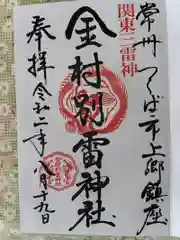 常州つくば市上郷鎮座
関東三雷神
金村別雷神社
奉拝令和二年八月十九日